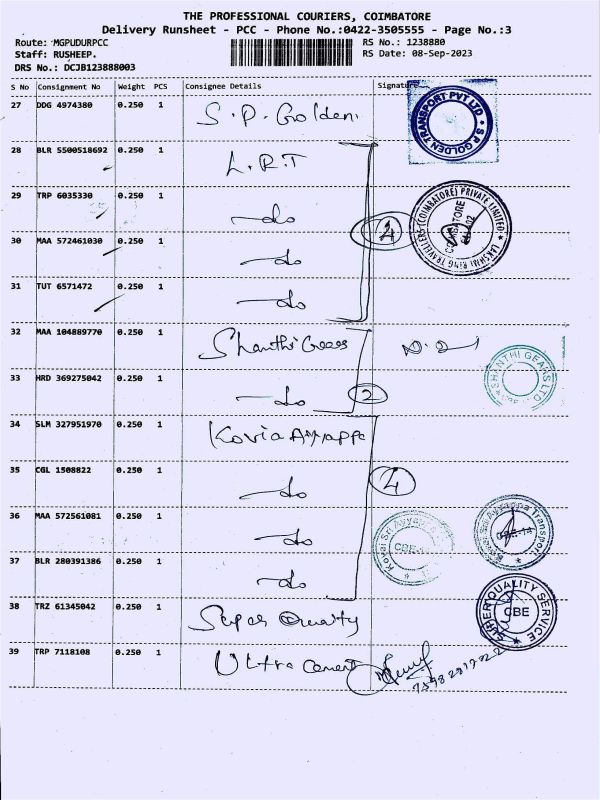 THE PROFESSIONAL COURIERS, COIMBATORE
Delivery Runsheet - PCC - Phone No.:0422-3505555 - Page No.:3
Route: MGPUDURPCC RS No.: 1238880
Staff: RUSHEEP. RS Date: 08-Sep-2023
DRS No.: DCJB123888003
S No Consignment No Weight PCS Consignee Details Signature
27 DDG 4974380 0.250 1 S.P. Golden.
S P GOLDEN TRANSPORT PVT LTD
28 BLR 5500518692 0.250 1 L.R.T
29 TRP 6035330 0.250 1 do
30 MAA 572461030 0.250 1 do
4
LAKSHMI RING TRAVELLERS (COIMBATORE) PRIVATE LIMITED
COIMBATORE
31 TUT 6571472 0.250 1 do
32 MAA 104889770 0.250 1 Shanthi Gears
SHANTHI GEARS LTD
33 HRD 369275042 0.250 1 do 2
34 SLM 327951970 0.250 1 Kovia Ayyappa
35 CGL 1508822 0.250 1 do 4
36 MAA 572561081 0.250 1 do
Kovai Sri Ayyappa
CBE
Kovai Sri Ayyappa Transport
37 BLR 280391386 0.250 1 do
38 TRZ 61345042 0.250 1 Super Quality
SUPER QUALITY SERVICE
CBE
39 TRP 7118108 0.250 1 Ultra Cement